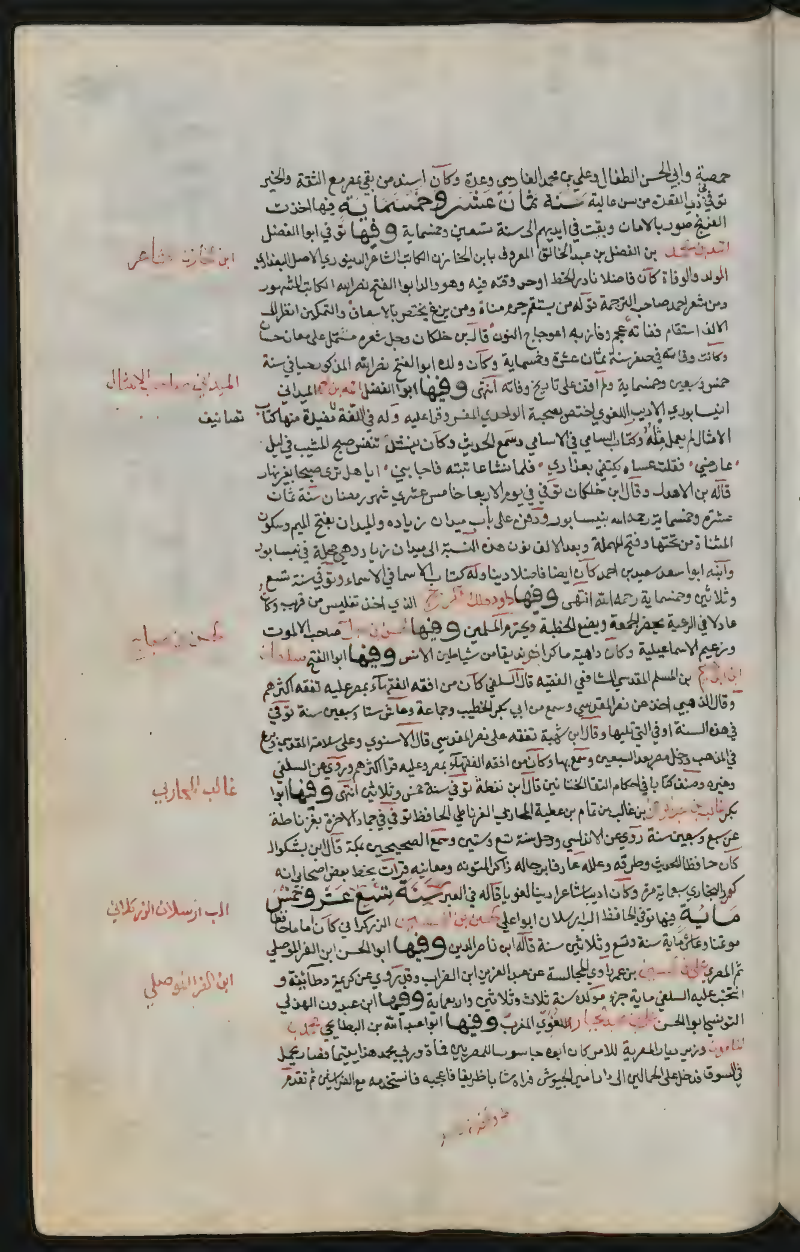 حمصة وابي الحسن الطفال وعلي بن محمد الفارسي وعدة وكان اسند من بقي بمصر مع الثقة والخير
توفي في ذي القعدة من سن عالية سنة ثمان عشر وخمسماية فيها اخذت
الفرنج صور بالامان وبقيت في ايديهم الى سنة تسعين وخمسماية وفيها توفي ابوا الفضل
احمد بن محمد بن الفضل بن عبد الخالق المعروف بابن الخازن الكاتب الشاعر الدينوري الاصل البغدادي
المولد والوفاة كان فاضلا نادر الخط اوحد وقته فيه وهو والد ابوا الفتح نصر الله الكاتب المشهور
ومن شعر احمد صاحب الترجمة قوله من يستقم يحرم مناه ومن يزغ يختص بالاسعاف والتمكين انظر لك
الالف استقام ففاته عجم وفاز به اعوجاج النون قال بن خلكان وجل شعره مشتمل على معان حسان
وكانت وفاته في صفر سنة ثمان عشرة وخمسماية وكان ولده ابوا الفتح نصر الله المذكور حيا في سنة
خمس وسبعين وخمسماية ولم اقف على تاريخ وفاته انتهى وفيها ابوا الفضل احمد بن محمد الميداني
النيسابوري الاديب اللغوي اختص بصحبة الواحدي المفسر وقرا عليه وله في اللغة تصانيف مفيدة منها كتاب
الامثال لم يعمل مثله وكتاب السامي في الاسامي وسمع الحديث وكان ينشد تنفس صبح المشيب في ليل
عارضي فقلت عساه يكتفي بعذاري فلما فشا عاتبته فاجابني ايا هل ترى صبحا بغير نهار
قاله بن الاهدل وقال ابن خلكان توفي في يوم الاربعا خامس عشري شهر رمضان سنة ثمان
عشرة وخمسماية رحمه الله بنيسابور ودفن على باب ميدان زياده والميدان بفتح الميم وسكون
المثناة من تحتها وفتح المهملة وبعد الالف نون هذه النسبة الى ميدان زياد وهي محلة في نيسابور
وابنه ابوا سعد سعيد بن احمد كان ايضا فاضلا دينا وله كتاب الاسما في الاسماء وتوفي سنة تسع
وثلاثين وخمسماية رحمه الله انتهى وفيها داود ملك الكرج الذي اخذ تفليس من قريب وكان
عادلا في الرعية يحضر الجمعة ويسمع الخطبة ويحترم المسلمين وفيها الحسن بن صباح صاحب الالموت
وزعيم الاسماعيلية وكان داهية ماكرا خونديقا من شياطين الانس وفيها ابوا الفتح سلطان
ابن ابراهيم بن المسلم المقدسي الشافعي الفقيه قال السلفي كان من افقه الفقهاء بمصر عليه تفقه اكثرهم
وقال الذهبي اخذ عن نصر المقدسي وسمع من ابي بكر الخطيب وجماعة وعاش ستا وسبعين سنة توفي
في هذه السنة او في التي تليها وقال ابن شهبة تفقه على نصر المقدسي قال الاسنوي وعلى سلامة المقدسي وبرع
في المذهب ودخل مصر بعد السبعين وسمع بها وكان من افقه الفقهاء بمصر وعليه قرا اكثرهم وروى عن السلفي
وغيره وصنف كتابا في احكام التقا الختانين قال ابن نقطة توفي سنة خمس وثلاثين انتهى وفيها ابوا
بكر غالب بن عبد الرحمن بن غالب بن تمام بن عطية المحاربي الغرناطي الحافظ توفي في جماد الاخرة بغرناطة
عن سبع وسبعين سنة روى عن الاندلسي وحل سنة تسع وستين وسمع الصحيحين بمكة قال ابن بشكوال
كان حافظا للحديث وطرقه وعلله عارفا برجاله ذاكرا لمتونه ومعانيه قرات بخط بعض اصحابي انه
كرر البخاري سبعماية مرة وكان اديبا شاعرا دينا لغويا قاله في العبر سنة تسع عشر وخمس
ماية فيها توفي الحافظ الب ارسلان ابوا علي الحسين بن الزركراني كان اماما حافظا
موتمنا وعاش ماية سنة وتسع وثلاثين سنة قاله ابن ناصر الدين وفيها ابوا الحسن ابن الفرا الموصلي
ثم المصري علي بن الحسين بن عمر راوي المجالسة عن عبد العزيز ابن الضراب وقد روى عن كريمة وطائفة و
انتخب عليه السلفي ماية جزء مولده سنة ثلاث وثلاثين واربعماية وفيها ابن عبدون الهذلي
التونسي ابوا الحسن علي بن عبد الجبار اللغوي المغرب وفيها ابوا عبد الله بن البطايحي محمد بن
المامون وزير ديار المصرية للامر كان ابوه جاسوسا للمصريين فمات وربي محمد هذا يتيما فصار يحمل
في السوق فدخل مع الحمالين الى دار امير الجيوش فراه شابا ظريفا فاعجبه فاستخدمه مع الفراشين ثم تقدم
ابن الخازن الشاعر
الميداني صاحب الامثال
تصانيف
الحسن بن صباح
غالب المحاربي
الب ارسلان الزركراني
ابن الفرا الموصلي